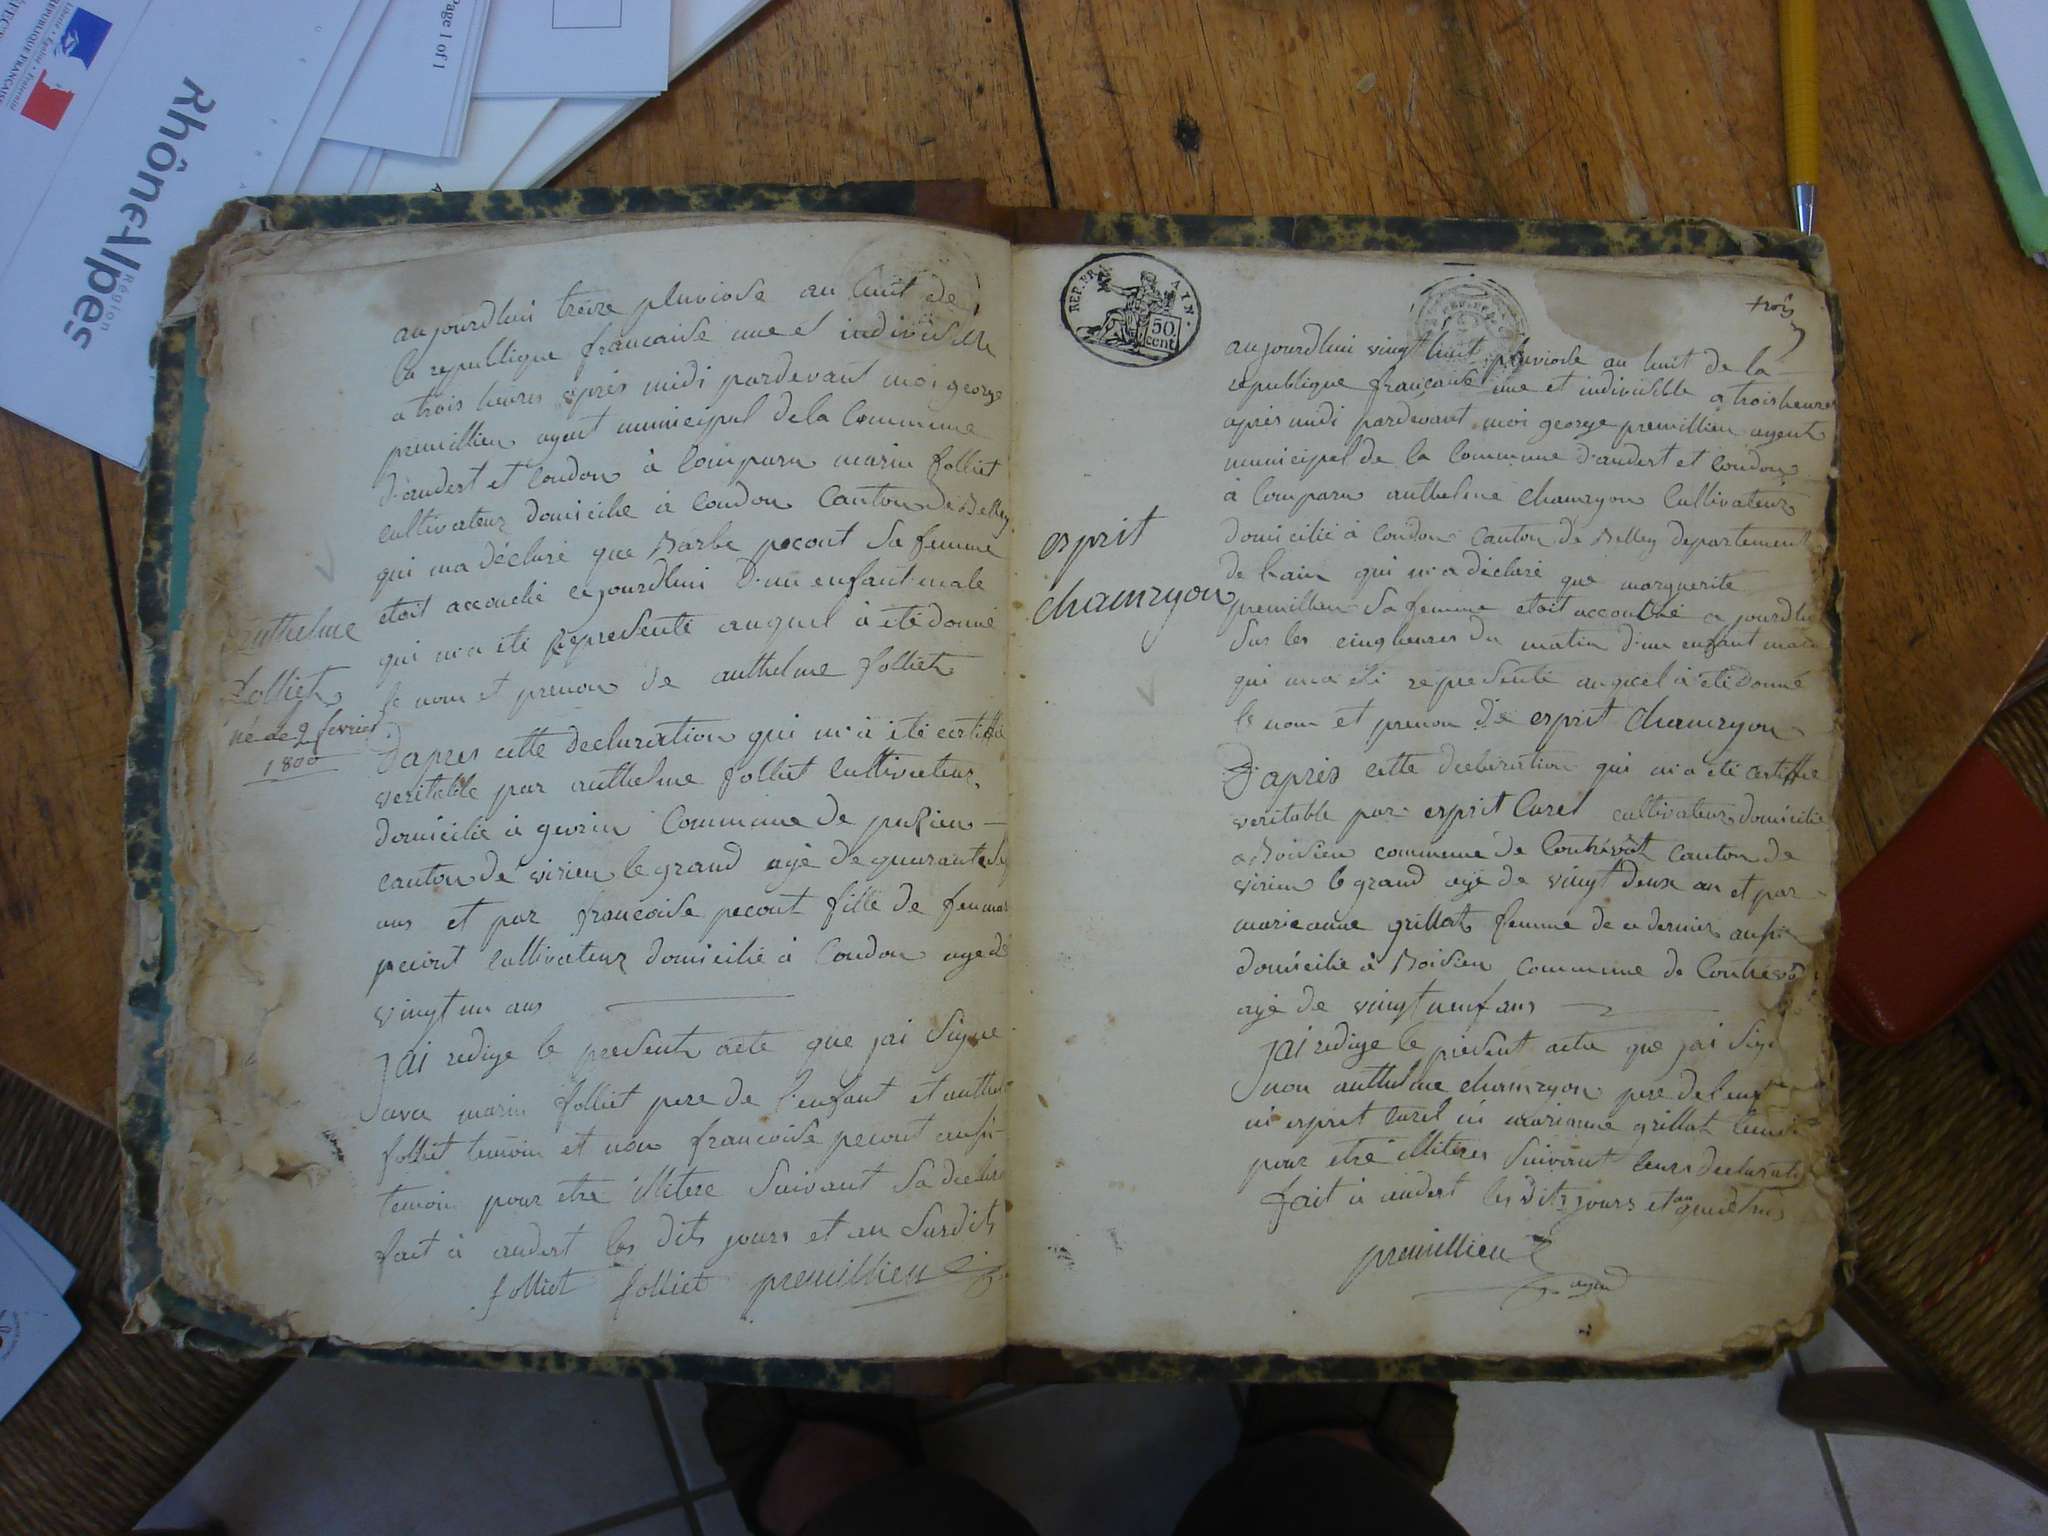 Liberté • Égalité • Fraternité
RÉPUBLIQUE FRANÇAISE
Rhône-Alpes
Région
Page 1 of 1
aujourdhui treize pluviose an huit de
la republique francaise une et indivisible
a trois heures après midi pardevant moi george
premillien agent municipal de la Commune
d'andert et Condon à Comparu marin folliet
cultivateur domicilié à Condon Canton de Belley
qui ma déclaré que Barbe pecout sa femme
etoit accouché cejourdhui d'un enfant male
qui m'a été representé auquel à eté donné
le nom et prenom de anthelme folliet
anthelme
folliet
né le 2 fevrier
1800
D'apres cette declaration qui m'a été certiffié
veritable par anthelme folliet cultivateur
domicilié à commune de
canton de virieu le grand agé de quarante
ans et par francoise pecout fille de
pecout cultivateur domicilié à Condon agé de
vingt un ans
J'ai redigé le present acte que jai signé
avec marin folliet pere de l'enfant et anthelme
folliet temoin et non francoise pecout aussi
temoin pour etre illiteré suivant sa declara
fait à andert les dits jours et an susdits
folliet folliet premillieu
REP. FRA AIN.
50 cent
trois
aujourdhui vingt huit pluviose an huit de la
republique francaise une et indivisible a trois heures
après midi pardevant moi george premillien agent
municipal de la Commune d'andert et Condon
à Comparu anthelme chamryon Cultivateur
domicilié à Condon Canton de Belley departement
de lain qui m'a déclaré que marguerite
premillieu sa femme etoit accouché cejourdhui
sur les cinq heures du matin d'un enfant male
qui m'a été representé auquel à eté donné
le nom et prenom de esprit chamryon
esprit
chamryon
D'après cette declaration qui m'a été certiffié
veritable par esprit Carel cultivateur domicilié
a Boisieu commune de Contrevoz Canton de
virieu le grand agé de vingt deux an et par
marieanne grillat femme de ce dernier aussi
domicilié à Boisieu commune de Contrevoz
agé de vingt neuf ans
J'ai redigé le present acte que jai signé
non anthelme chamryon pere de lenf
ni esprit carel ni marianne grillat temoi
pour etre illiteres suivant leurs declarati
fait à andert les dits jours et an
premillieu
agent